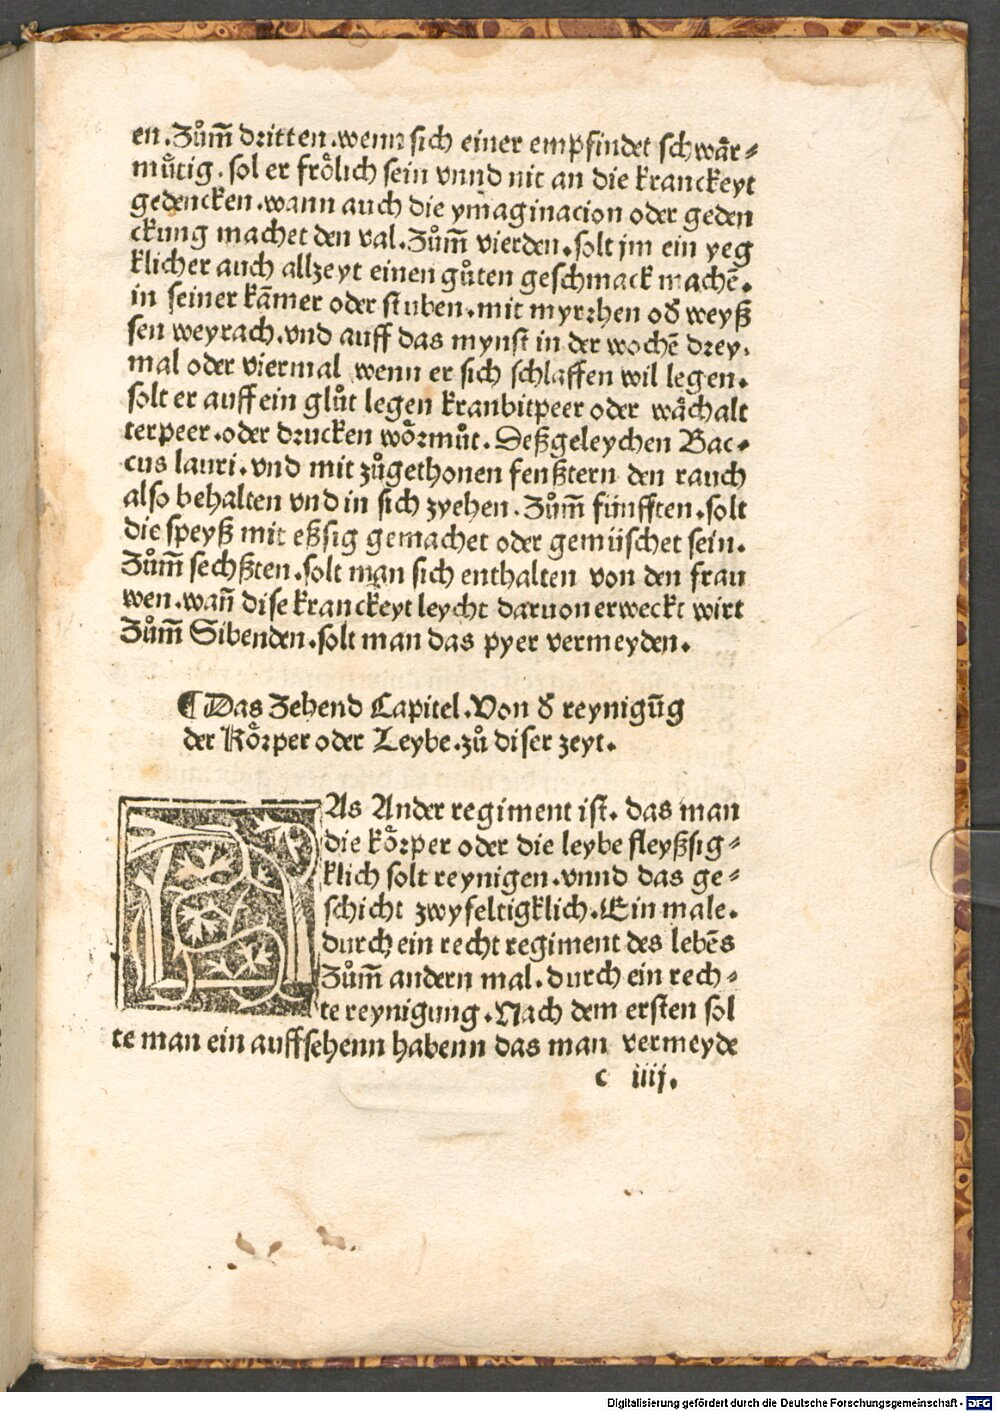 en.Zům̃ dritten.wenn sich einer empfindet schwãr⸗
mu̇tig.sol er frȯlich sein vnnd nit an die kranckeyt
gedencken.wann auch die ymaginacion oder geden
ckung machet den val.Zům̃ vierden.solt jm ein yeg
klicher auch allzeyt einen gůten geschmack machẽ.
in seiner kãmer oder stuben.mit myrrhen oď weyß
sen weyrach.vnd auff das mynst in der wochẽ drey.
mal oder viermal wenn er sich schlaffen wil legen.
solt er auff ein glůt legen kranbitpeer oder wȧchalt
terpeer.oder drucken wȯrmůt.Deßgeleychen Bac⸗
cus lauri.vnd mit zůgethonen fenßtern den rauch
also behalten vnd in sich zyehen.Zům̃ fünfften.solt
die speyß mit eßsig gemachet oder gemüschet sein.
Zům̃ sechßten.solt man sich enthalten von den frau
wen.wañ dise kranckeyt leycht daruon erweckt wirt
Zům̃ Sibenden.solt man das pyer vermeyden.
¶Das Zehend Capitel.Von ď reynigũg
der Kȯrper oder Leybe.zů diser zeyt.
DAs Ander regiment ist.das man
die kȯrper oder die leybe fleyßsig⸗
klich solt reynigen.vnnd das ge⸗
schicht zwyfeltigklich.Ein male.
durch ein recht regiment des lebẽs
Zům̃ andern mal.durch ein rech⸗
te reynigung.Nach dem ersten sol
te man ein auffsehenn habenn das man vermeyde
c iiij.
Digitalisierung gefördert durch die Deutsche Forschungsgemeinschaft - DFG